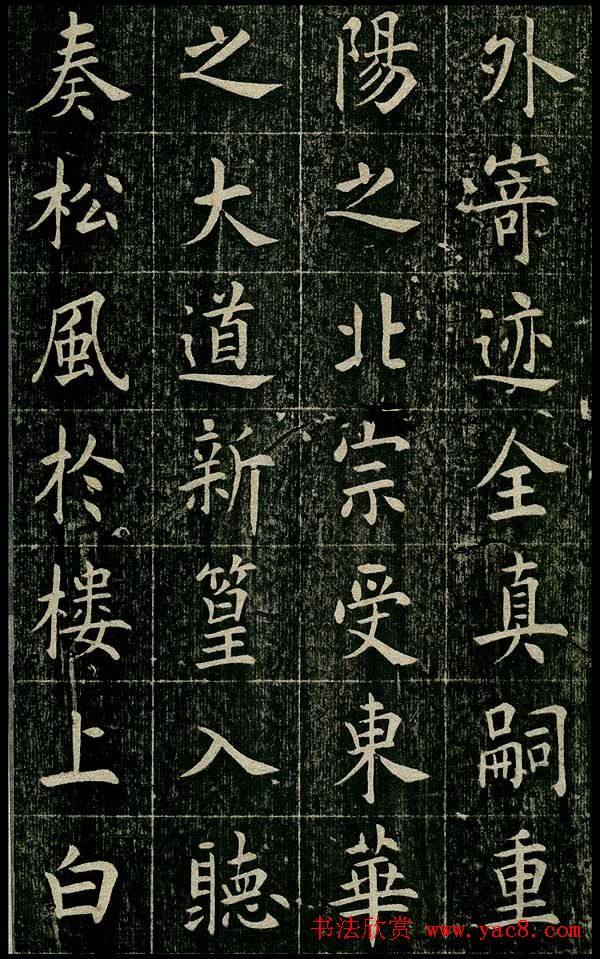 外寄迹全真嗣重
陽之北宗受東華
之大道新篁入聽
奏松風於樓上白
书法欣赏 www.yac8.com